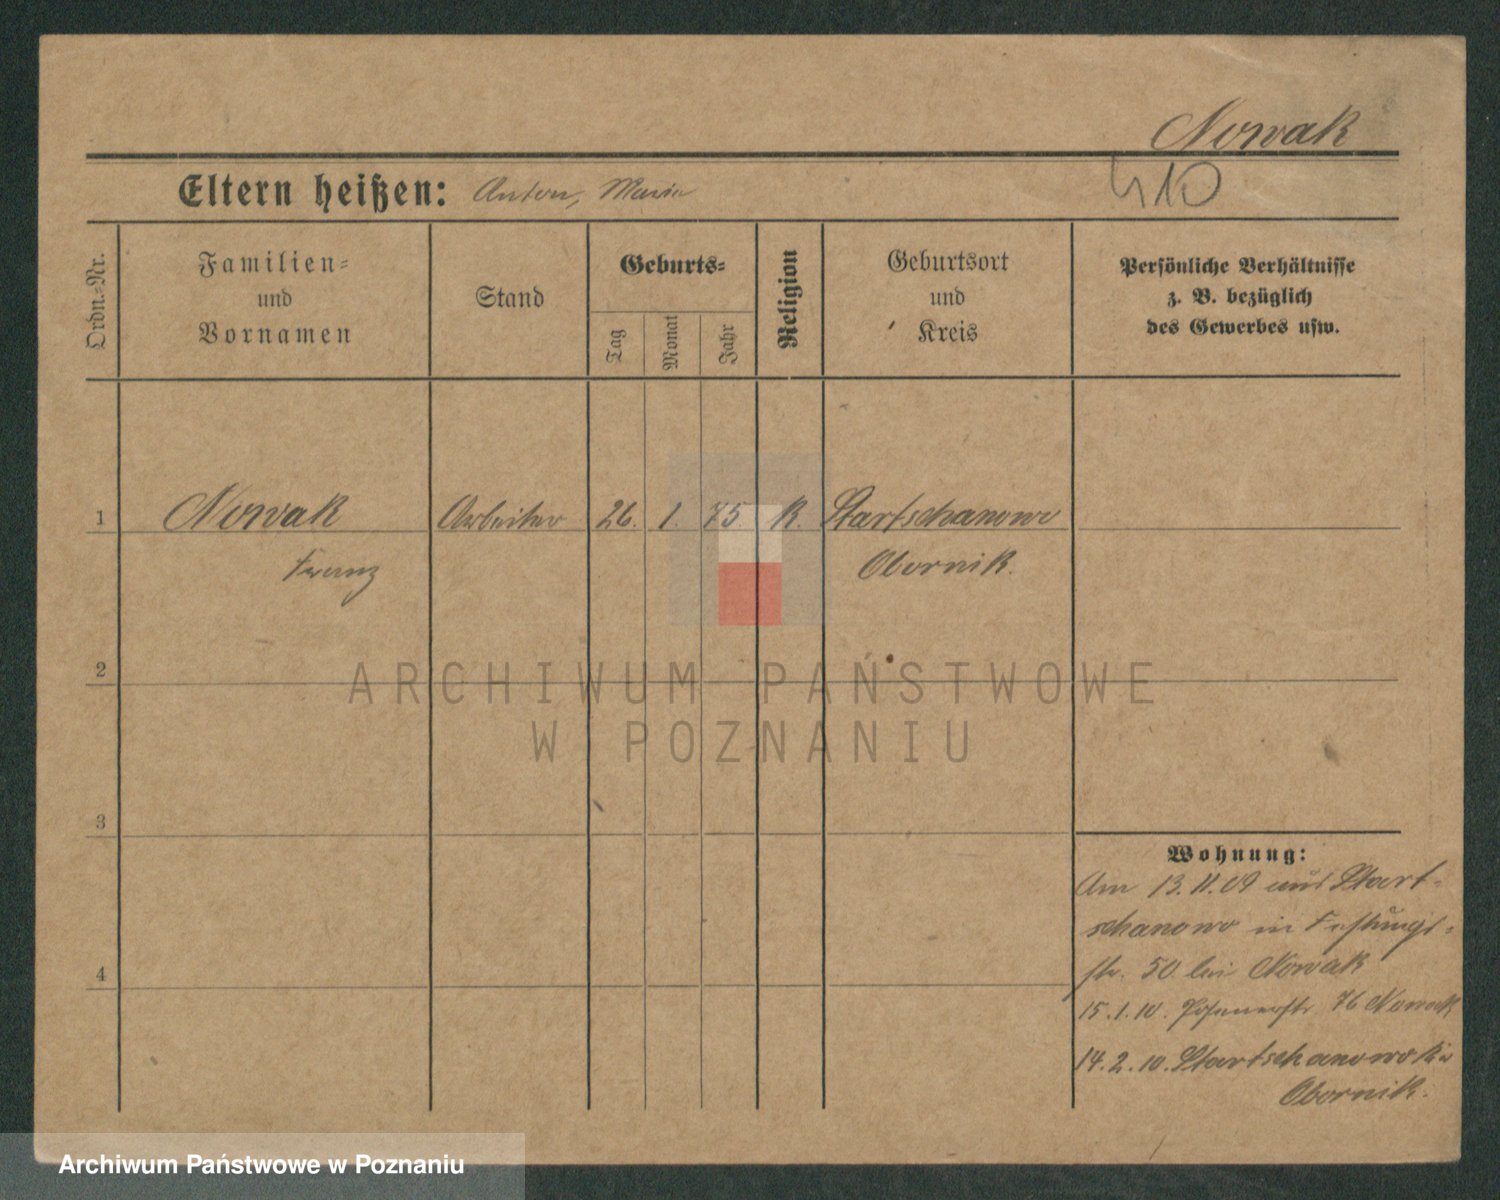 Nowak
410
Eltern heißen: Anton, Maria
Ordn.-Nr.
Familien-
und
Vornamen
Stand
Geburts-
Tag
Monat
Jahr
Religion
Geburtsort
und
Kreis
Persönliche Verhältnisse
z. B. bezüglich
des Gewerbes usw.
1 Nowak Arbeiter 26. 1. 75 K. Startschanowo
Franz Obornik.
2
ARCHIWUM PAŃSTWOWE
W POZNANIU
3
Wohnung:
Am 13.11.09 aus Start-
schanowo in Festungs-
str. 50 bei Nowak
4
15.1.10. Posenerstr 76 Nowak
14.2.10. Startschanowo Kr
Obornik.
Archiwum Państwowe w Poznaniu